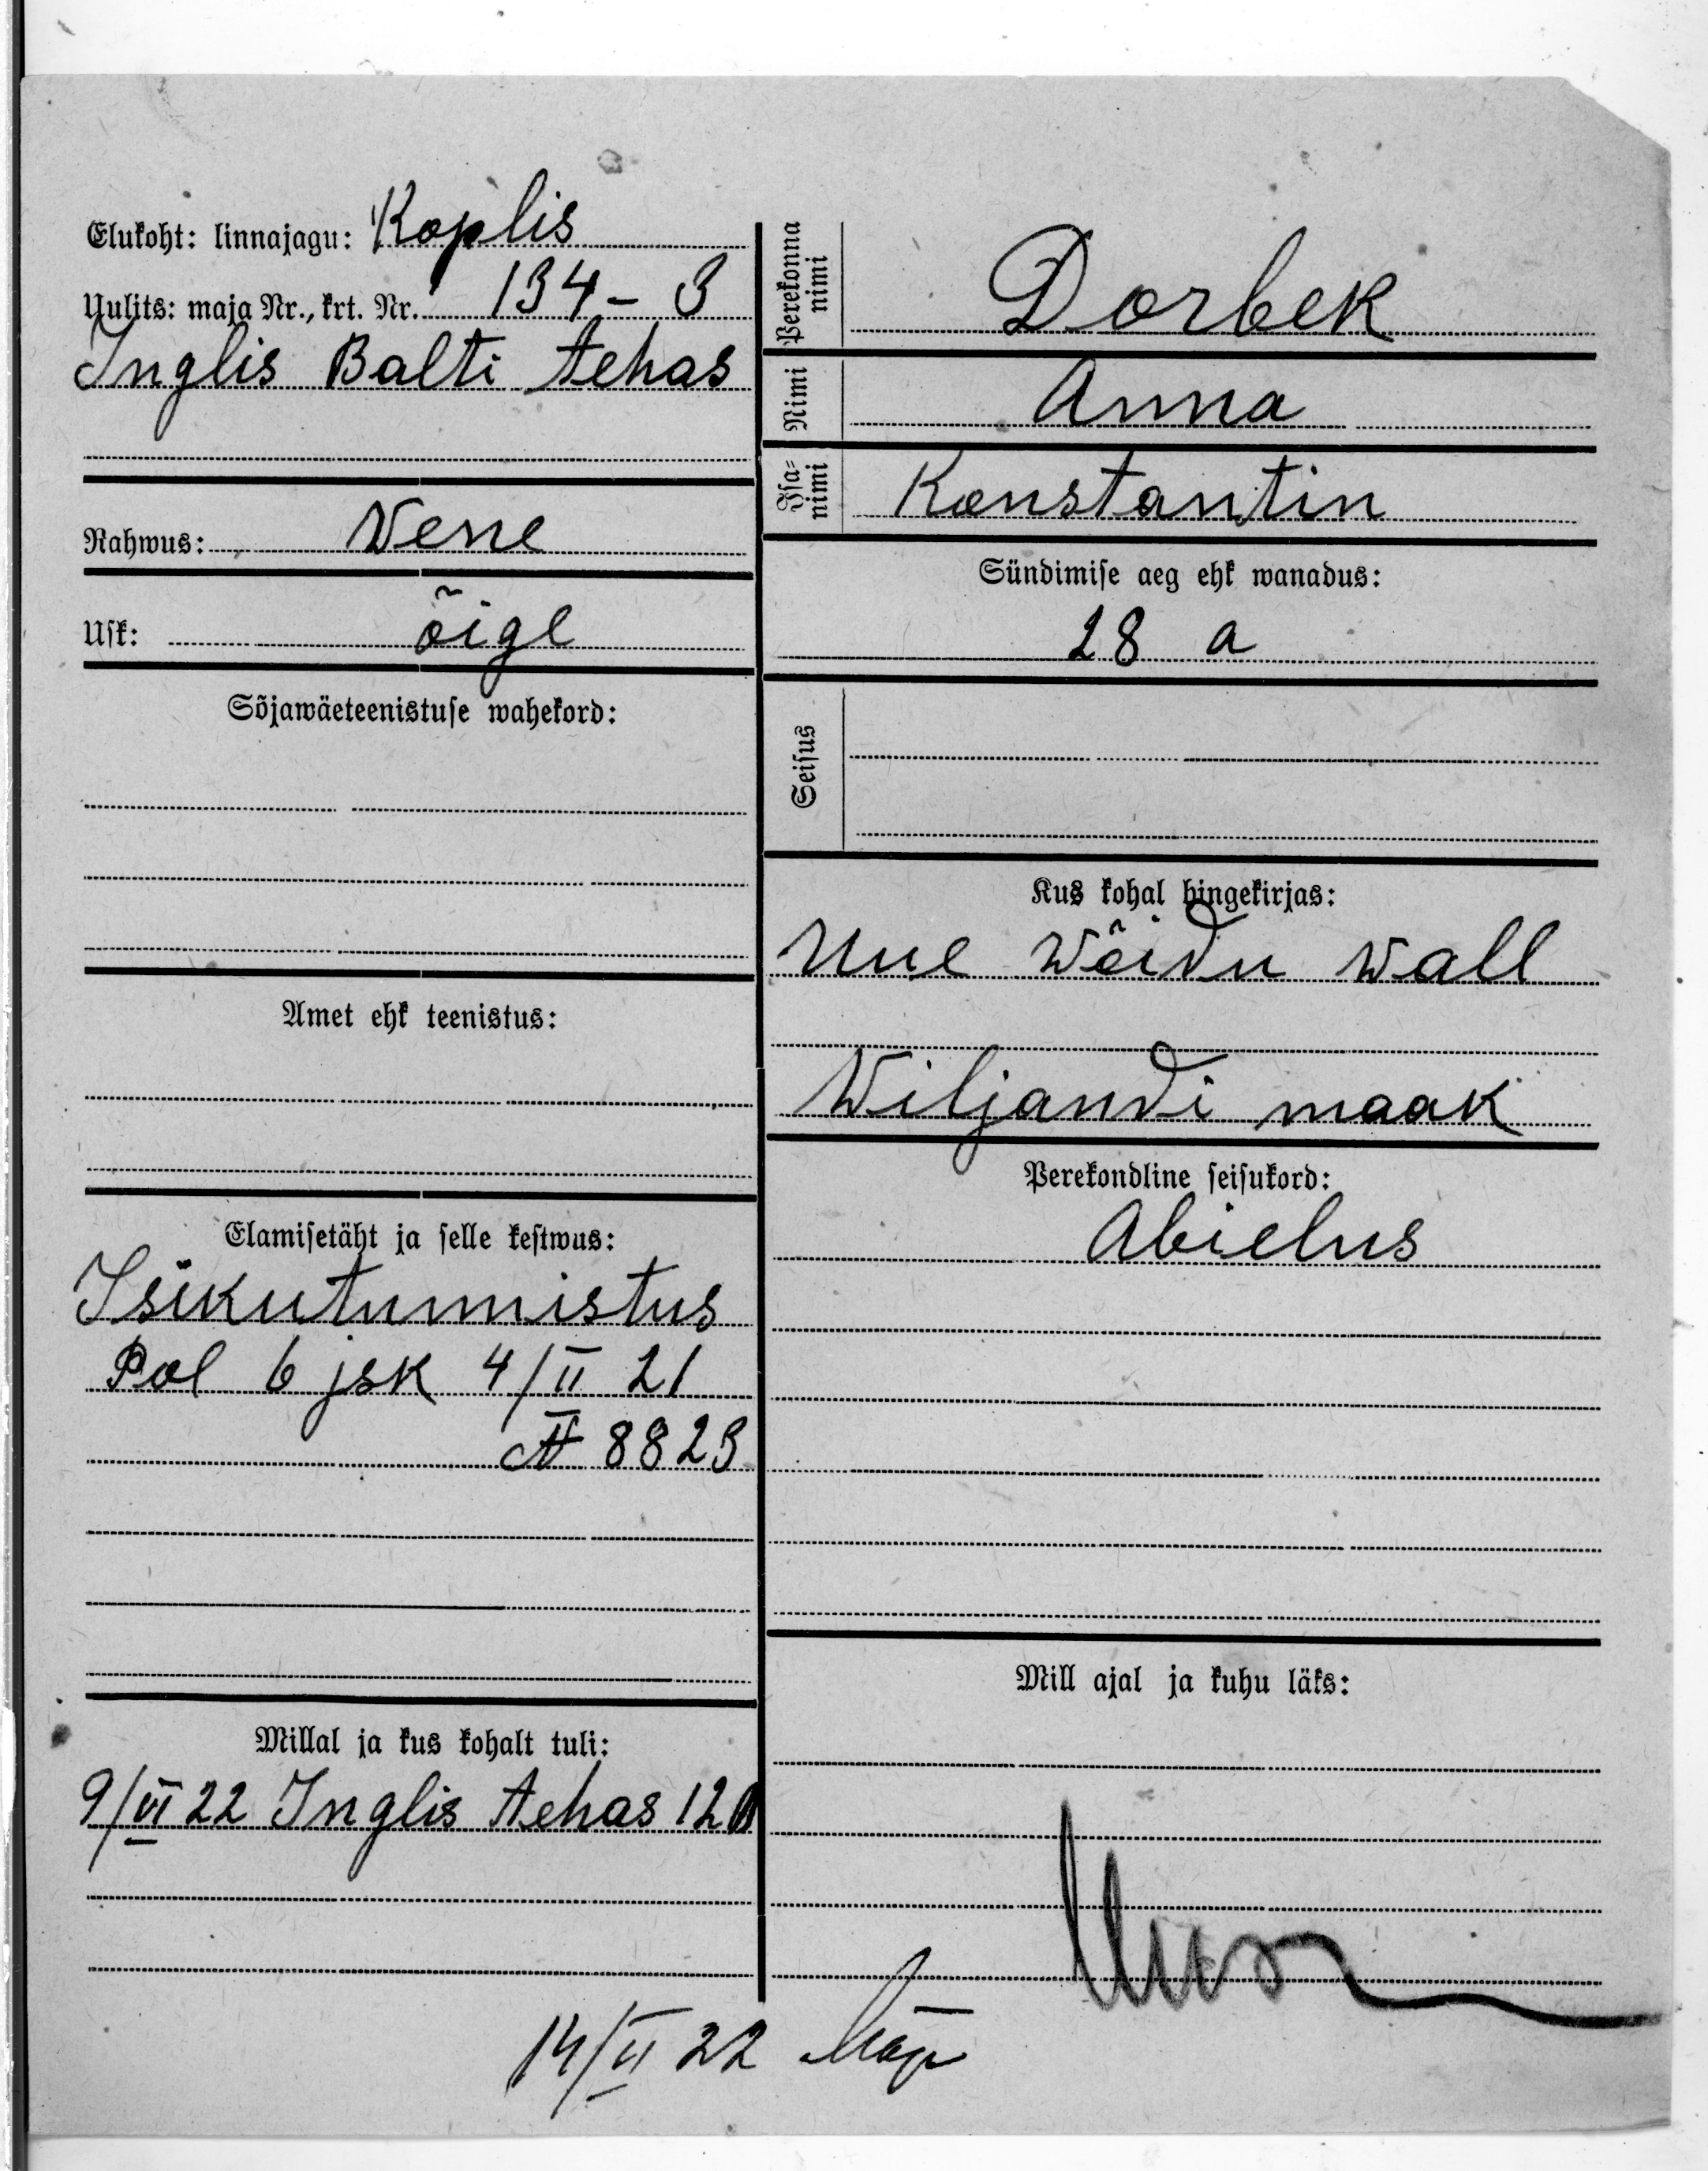 Elukoht: linnajagu: Koplis
Uulits: maja Nr., krt. Nr. 134 - 3
Inglis Balti tehas
Rahwus: Vene
Usk: õige
Sõjawäeteenistuse wahekord:
Amet ehk teenistus:
Elamisetäht ja selle kestwus:
Isikutunnistus
Pol 6 jsk 4/II 21
№ 8823
Millal ja kus kohalt tuli:
9/VI 22 Inglis tehas 12B
Perekonna nimi Dorbek
Nimi Anna
Isa-nimi Konstantin
Sündimise aeg ehk wanadus:
28 a
Seisus
Kus kohal hingekirjas:
Uue Wõidu Wall
Wiljandi maak
Perekondline seisukord:
Abielus
Mill ajal ja kuhu läks:
14/VI 22